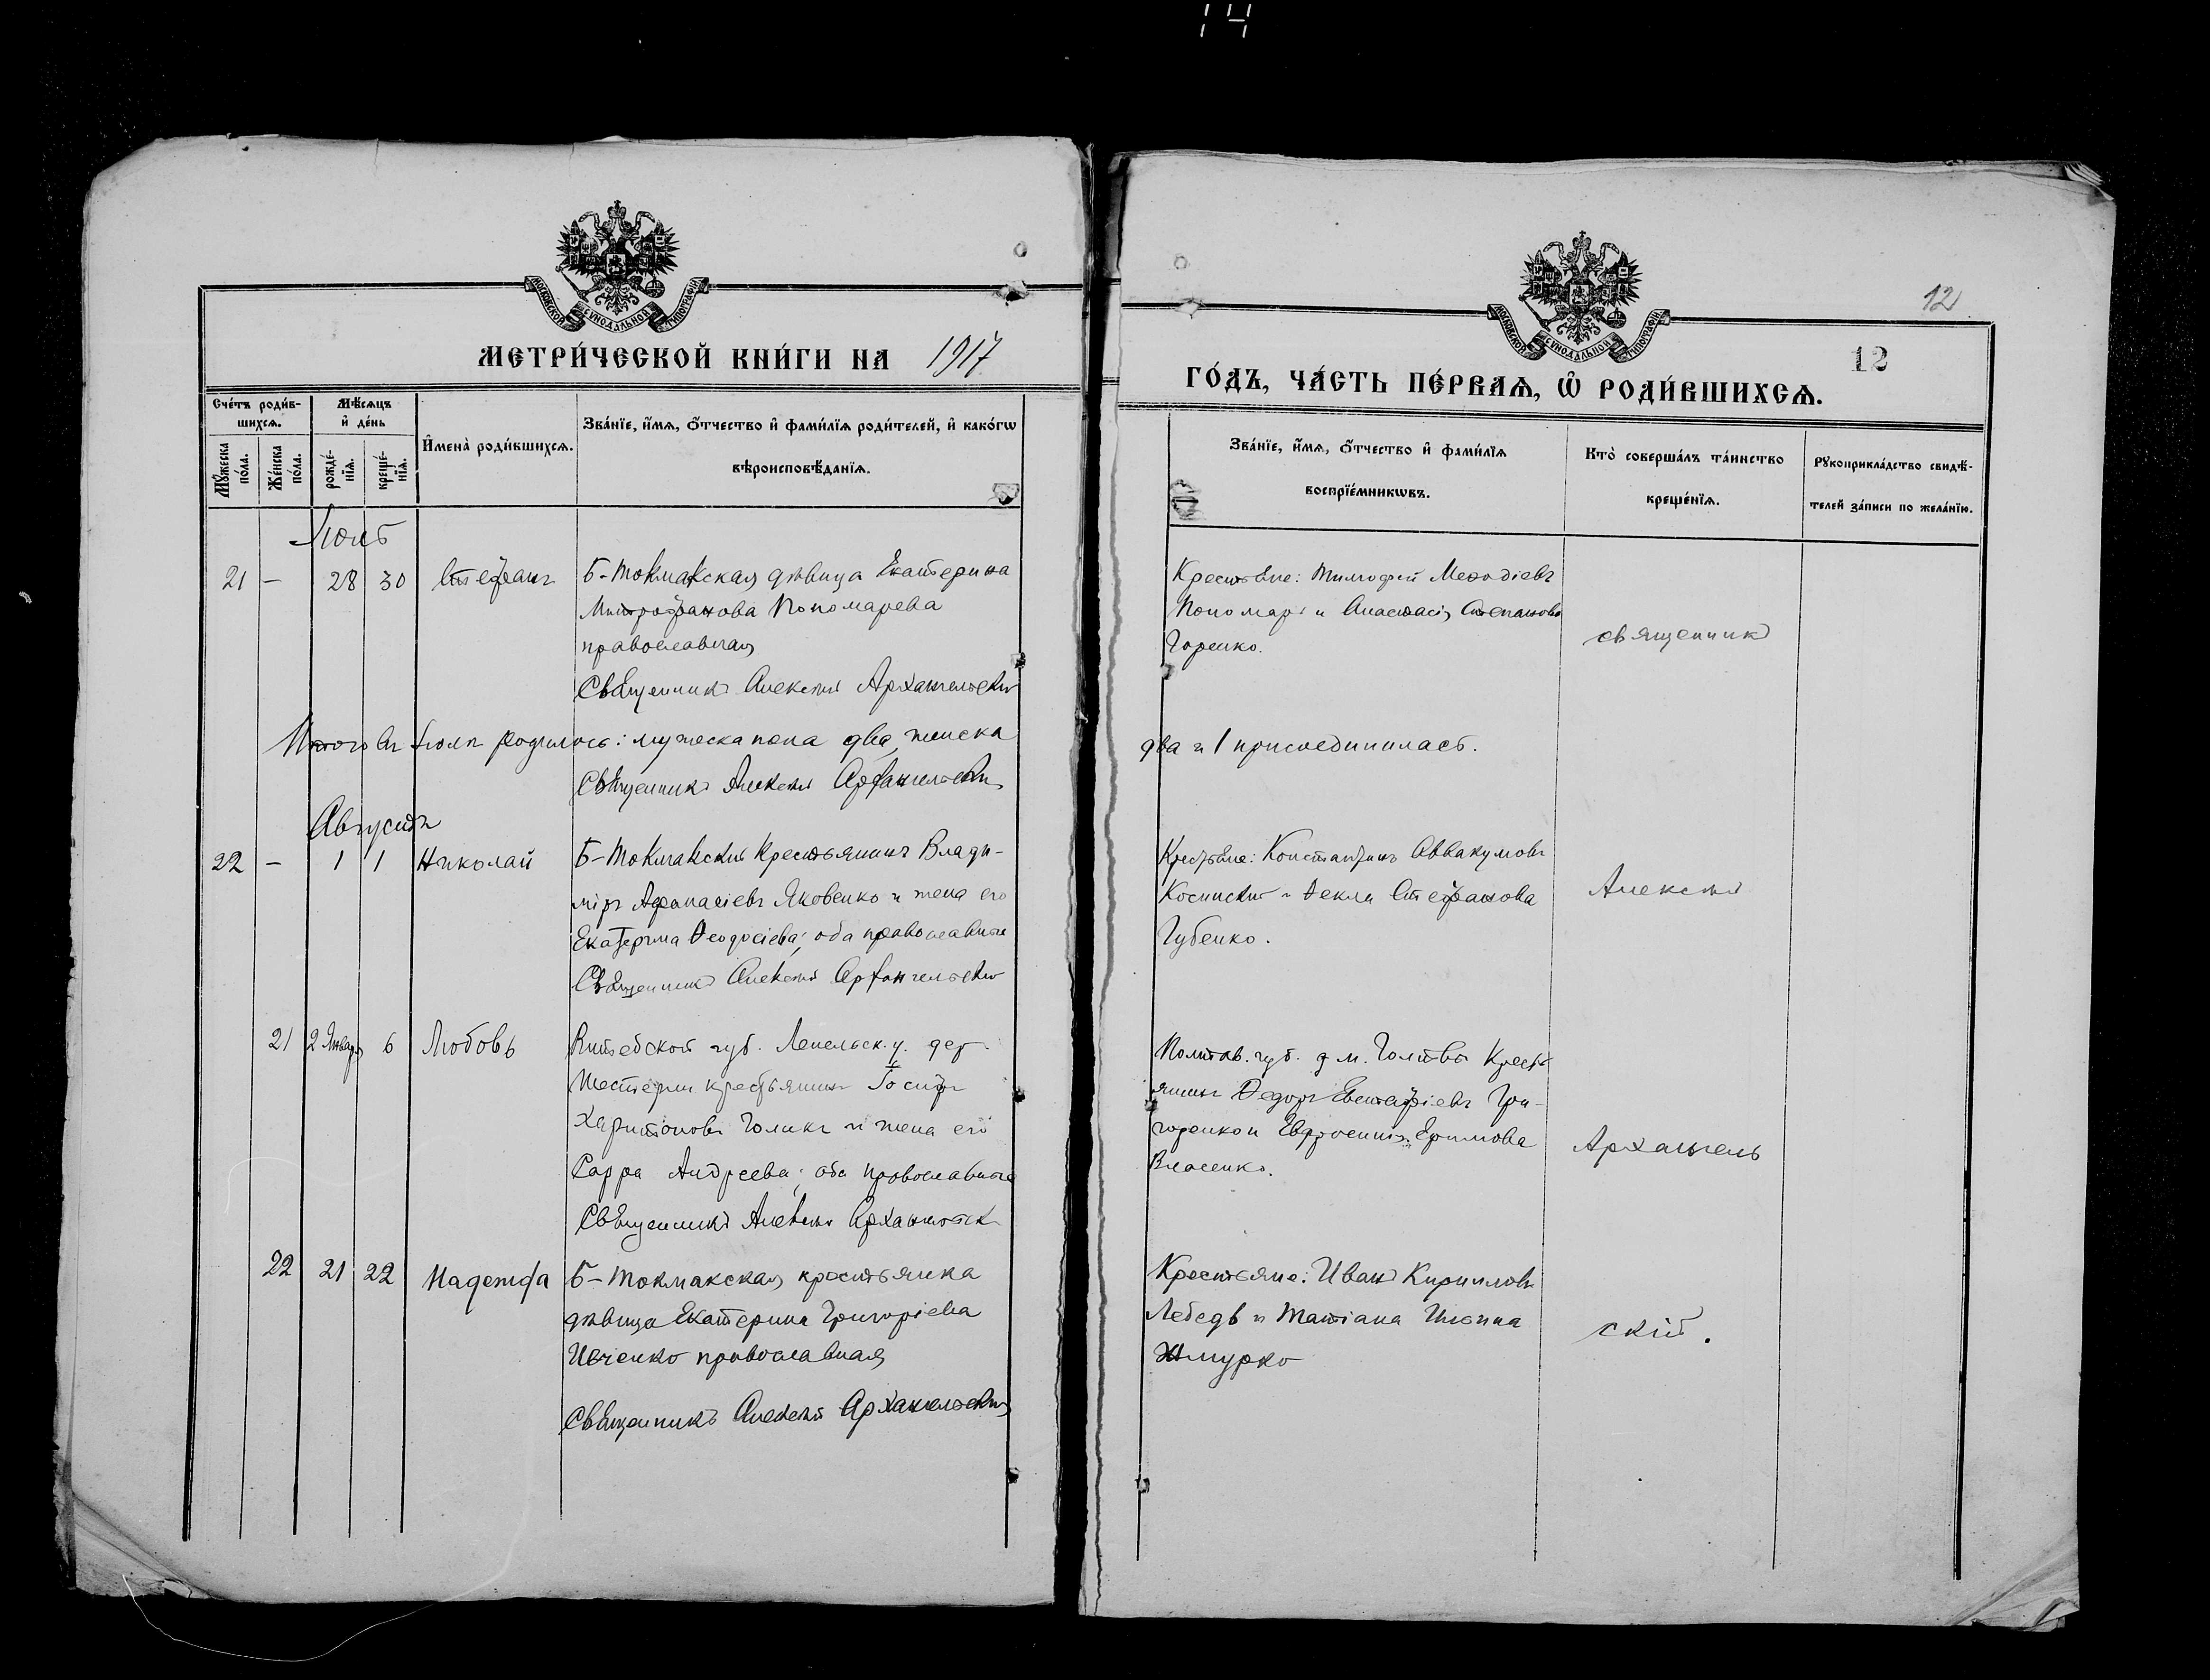 14
МОСКОВСКОЙ СУНОДАЛЬНОЙ ТИПОГРАФІИ
МЕТРИ́ЧЕСКОЙ КНИ́ГИ НА 1917
Сче́тъ роди́в-
шихсѧ.
Мѣ́сѧцъ
и҆ де́нь
Мꙋ́жеска
по́ла.
Же́нска
по́ла.
рожде́-
нїѧ.
креще́-
нїѧ.
И҆мена̀ роди́вшихсѧ.
Зва́нїе, и҆́мѧ, ѻ҆́тчество и҆ фами́лїѧ роди́телей, и҆ како́гѡ
вѣроисповѣ́данїѧ.
Іюль
21 — 28 30 Стефанъ
Б-Токмакская дѣвица Екатерина
Митрофанова Пономарева
православная
Священникъ Алексій Архангельскій
Итого въ Іюлѣ родилось: мужеска пола два, женска
Священникъ Алексій Архангельскій
Августъ
22 — 1 1 Николай
Б-Токмакскій крестьянинъ Влади-
міръ Афанасіевъ Яковенко и жена его
Екатерина Ѳеодосіева; оба православные
Священникъ Алексій Архангельскій
21 2 Января 6 Любовь
Витебской губ. Лепельск. у. дер.
крестьянинъ Іосифъ
Харитоновъ Голикъ и жена его
Сарра Андреева; оба православные
Священникъ Алексій Архангельск
22 21 22 Надежда
Б-Токмакская крестьянка
дѣвица Екатерина Григоріева
Ивченко православная
Священникъ Алексій Архангельскій
12
12
МОСКОВСКОЙ СУНОДАЛЬНОЙ ТИПОГРАФІИ
ГО́ДЪ, ЧА́СТЬ ПЕ́РВАѦ, Ѡ҆ РОДИ́ВШИХСѦ.
Зва́нїе, и҆́мѧ, ѻ҆́тчество и҆ фами́лїѧ
воспрїе́мникѡвъ.
Кто̀ соверша́лъ та́инство
креще́нїѧ.
Рꙋкоприкла́дство свидѣ́-
телей за́писи по жела́нїю.
Крестьяне: Тимофей Меѳодіевъ
Пономарь и Анастасія Степанова
Горенко.
священникъ
два и 1 присоединилась.
Крестьяне: Константинъ Аввакумовъ
Косинскій и Ѳекла Стефанова
Губенко.
Алексій
Полтав. губ. м. Голтвы кресть
янинъ Ѳедоръ Евстафіевъ Гри-
горенко и Евфросинія Ефимова
Власенко.
Архангель
Крестьяне: Иванъ Кирилловъ
Лебедь и Татіана Ильина
Жмурко
скій.